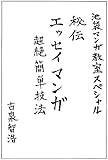 池袋マンガ教室スペシャル
秘伝
エッセイマンガ
超絶簡単技法
古泉智浩